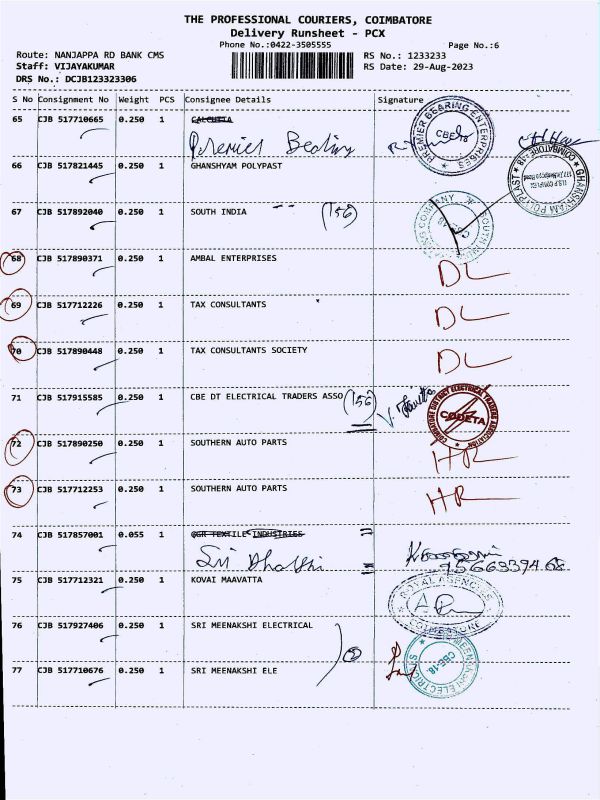 THE PROFESSIONAL COURIERS, COIMBATORE
Delivery Runsheet - PCX
Phone No.:0422-3505555
Page No.:6
Route: NANJAPPA RD BANK CMS
RS No.: 1233233
Staff: VIJAYAKUMAR
RS Date: 29-Aug-2023
DRS No.: DCJB123323306
S No Consignment No Weight PCS Consignee Details Signature
65 CJB 517710665 0.250 1 CALCUTTA
Premier Bearing
PREMIER BEARING ENTERPRISES
CBE-18
66 CJB 517821445 0.250 1 GHANSHYAM POLYPAST
GHANSHYAM POLYPLAST
COIMBATORE-18
67 CJB 517892040 0.250 1 SOUTH INDIA (156)
68 CJB 517890371 0.250 1 AMBAL ENTERPRISES DL
69 CJB 517712226 0.250 1 TAX CONSULTANTS DL
70 CJB 517890448 0.250 1 TAX CONSULTANTS SOCIETY DL
71 CJB 517915585 0.250 1 CBE DT ELECTRICAL TRADERS ASSO (156)
COIMBATORE DISTRICT ELECTRICAL TRADERS ASSOCIATION
CODETA
72 CJB 517890250 0.250 1 SOUTHERN AUTO PARTS HR
73 CJB 517712253 0.250 1 SOUTHERN AUTO PARTS HR
74 CJB 517857001 0.055 1 GGR TEXTILE INDUSTRIES
Sri
75 CJB 517712321 0.250 1 KOVAI MAAVATTA
ROYAL AGENCIES
COIMBATORE
76 CJB 517927406 0.250 1 SRI MEENAKSHI ELECTRICAL
77 CJB 517710676 0.250 1 SRI MEENAKSHI ELE
MEENAKSHI ELECTRICALS
CBE-18.